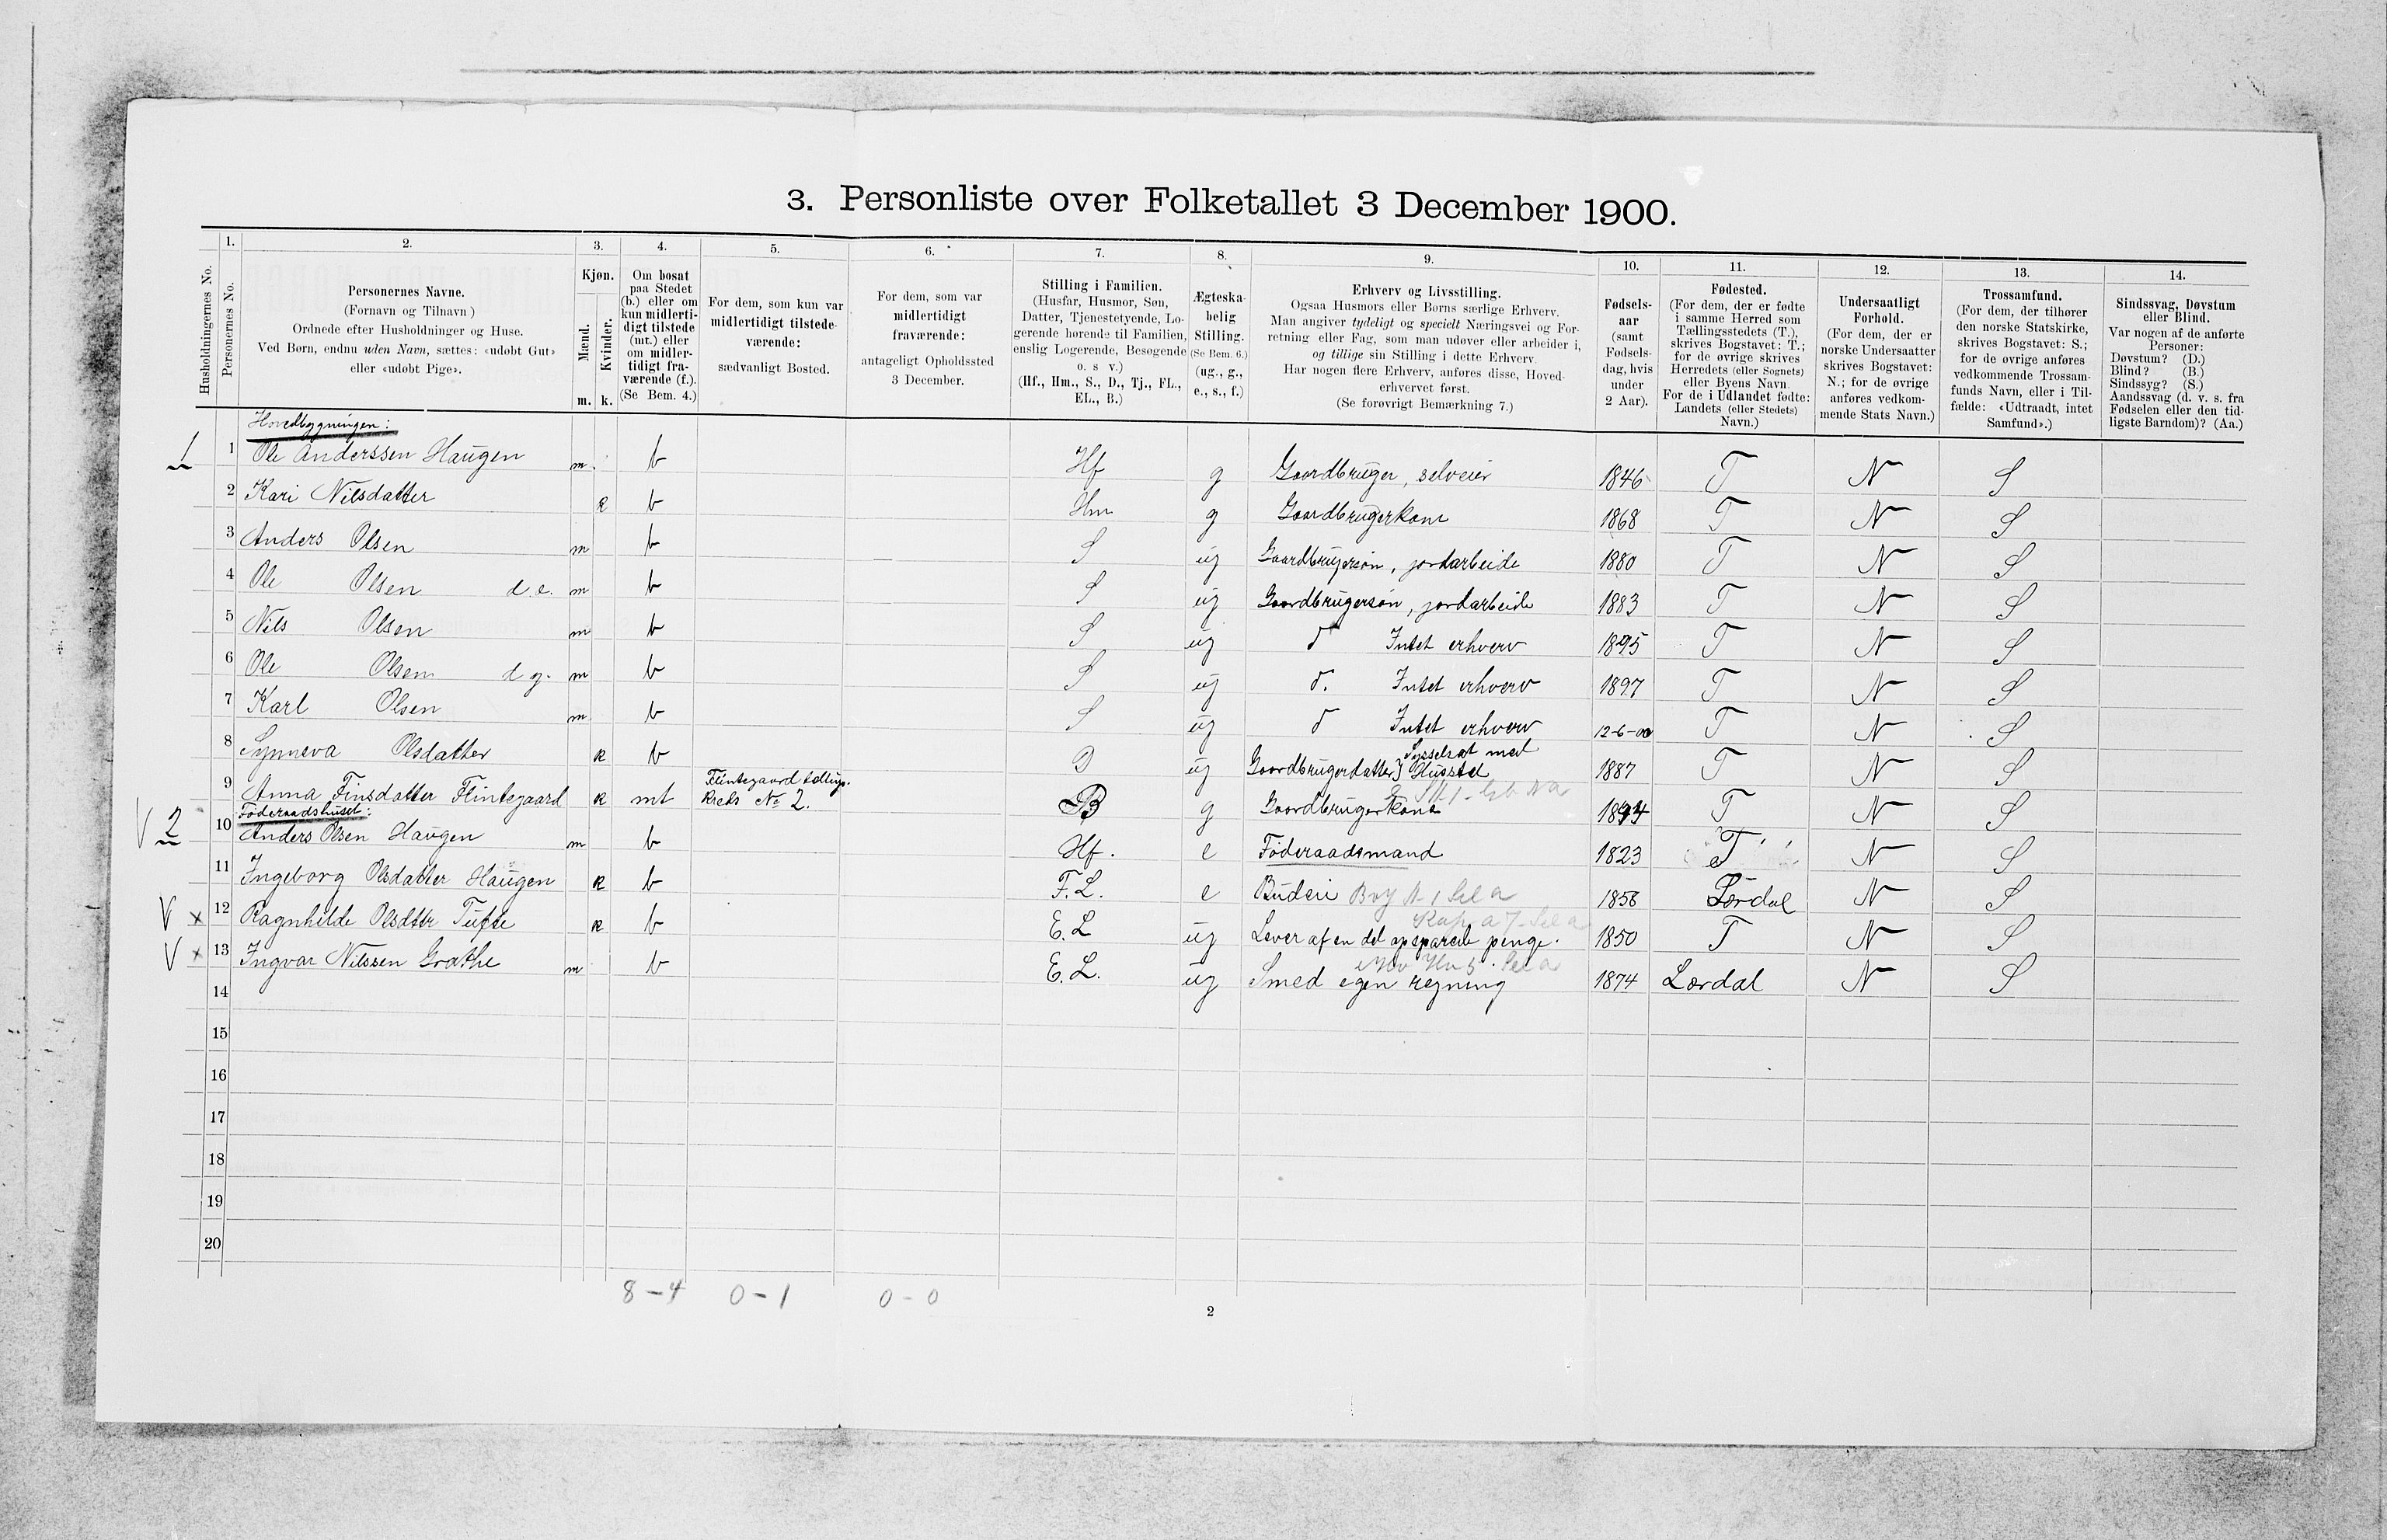 3. Personliste over Folketallet 3 December 1900.
Husholdningernes No.
1.
Personernes No.
2.
Personernes Navne.
(Fornavn og Tilnavn)
Ordnede efter Husholdninger og Huse.
Ved Børn, endnu uden Navn, sættes: «udøbt Gut»
eller «udøbt Pige».
3.
Kjøn.
Mænd.
Kvinder.
m. k.
4.
Om bosat
paa Stedet
(b.) eller om
kun midlerti-
digt tilstede
(mt.) eller
om midler-
tidigt fra-
værende (f.).
(Se Bem. 4.)
5.
For dem, som kun var
midlertidigt tilstede-
værende:
sædvanligt Bosted.
6.
For dem, som var
midlertidigt
fraværende:
antageligt Opholdssted
3 December.
7.
Stilling i Familien.
(Husfar, Husmor, Søn,
Datter, Tjenestetyende, Lo-
gerende hørende til Familien,
enslig Logerende, Besøgende
o. s v.)
(Hf., Hm., S., D., Tj., FL.,
EL., B.)
8.
Ægteska-
belig
Stilling.
(Se Bem. 6.)
(ug., g.,
e., s., f.)
9.
Erhverv og Livsstilling.
Ogsaa Husmors eller Børns særlige Erhverv.
Man angiver tydeligt og specielt Næringsvei og For-
retning eller Fag, som man udøver eller arbeider i,
og tillige sin Stilling i dette Erhverv.
Har nogen flere Erhverv, anføres disse, Hoved-
erhvervet først.
(Se forøvrigt Bemærkning 7.)
10.
Fødsels-
aar
(samt
Fødsels-
dag, hvis
under
2 Aar).
11.
Fødested.
(For dem, der er fødte
i samme Herred som
Tællingsstedets (T.),
skrives Bogstavet: T.;
for de øvrige skrives
Herredets (eller Sognets)
eller Byens Navn.
For de i Udlandet fødte:
Landets (eller Stedets)
Navn.)
12.
Undersaatligt
Forhold.
(For dem, der er
norske Undersaatter
skrives Bogstavet:
N.; for de øvrige
anføres vedkom-
mende Stats Navn.)
13.
Trossamfund.
(For dem, der tilhører
den norske Statskirke,
skrives Bogstavet: S.;
for de øvrige anføres
vedkommende Trossam-
funds Navn, eller i Til-
fælde: «Udtraadt, intet
Samfund».)
14.
Sindssvag, Døvstum
eller Blind.
Var nogen af de anførte
Personer:
Døvstum? (D.)
Blind? (B.)
Sindssyg? (S.)
Aandssvag (d. v. s. fra
Fødselen eller den tid-
ligste Barndom)? (Aa.)
Hovedbygningen:
1 1 Ole Anderssen Haugen m. b Hf g Gaardbruger, selveier 1846 T N S
2 Kari Nilsdatter k b Hm g Gaardbrugerkone 1868 T N S
3 Anders Olsen m b S ug Gaardbrugersøn, jordarbeide 1880 T N S
4 Ole Olsen d.e. m b S ug Gaardbrugersøn, jordarbeide 1883 T N S
5 Nils Olsen m b S ug d Intet erhverv 1895 T N S
6 Ole Olsen d y. m b S ug d. Intet erhverv 1897 T N S
7 Karl Olsen m b S ug d Intet erhverv 12-6-00 T N S
8 Synneva Olsdatter k b D ug Gaardbrugerdatter, Sysselsat med Husstel 1887 T N S
9 Anna Finsdatter Flintegaard k mt Flintegaard tællings. kreds No 2. B g Gaardbrugerkone T N S
Føderaadshuset:
V 2 10 Anders Olsen Haugen m b Hf. e Føderaadsmand 1823 T N S
11 Ingeborg Olsdatter Haugen k b F.L. e Budeie N S
V x 12 Ragnhilde Olsdttr Tufte k b E.L ug Lever af en del opsparede penge. 1850 T N S
V x 13 Ingvar Nilssen Grøthe m b E.L. ug Smed egen regning 1874 Lærdal N S
14
15
16
17
18
19
20
8-4 0-1 0-0
2